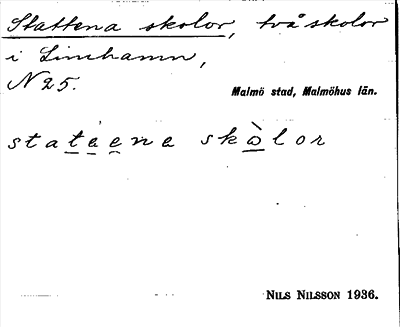 Stattena skolor, två skolor
i Limhamn,
N 25.
Malmö stad, Malmöhus län.
statèene skòlor
NILS NILSSON 1936.